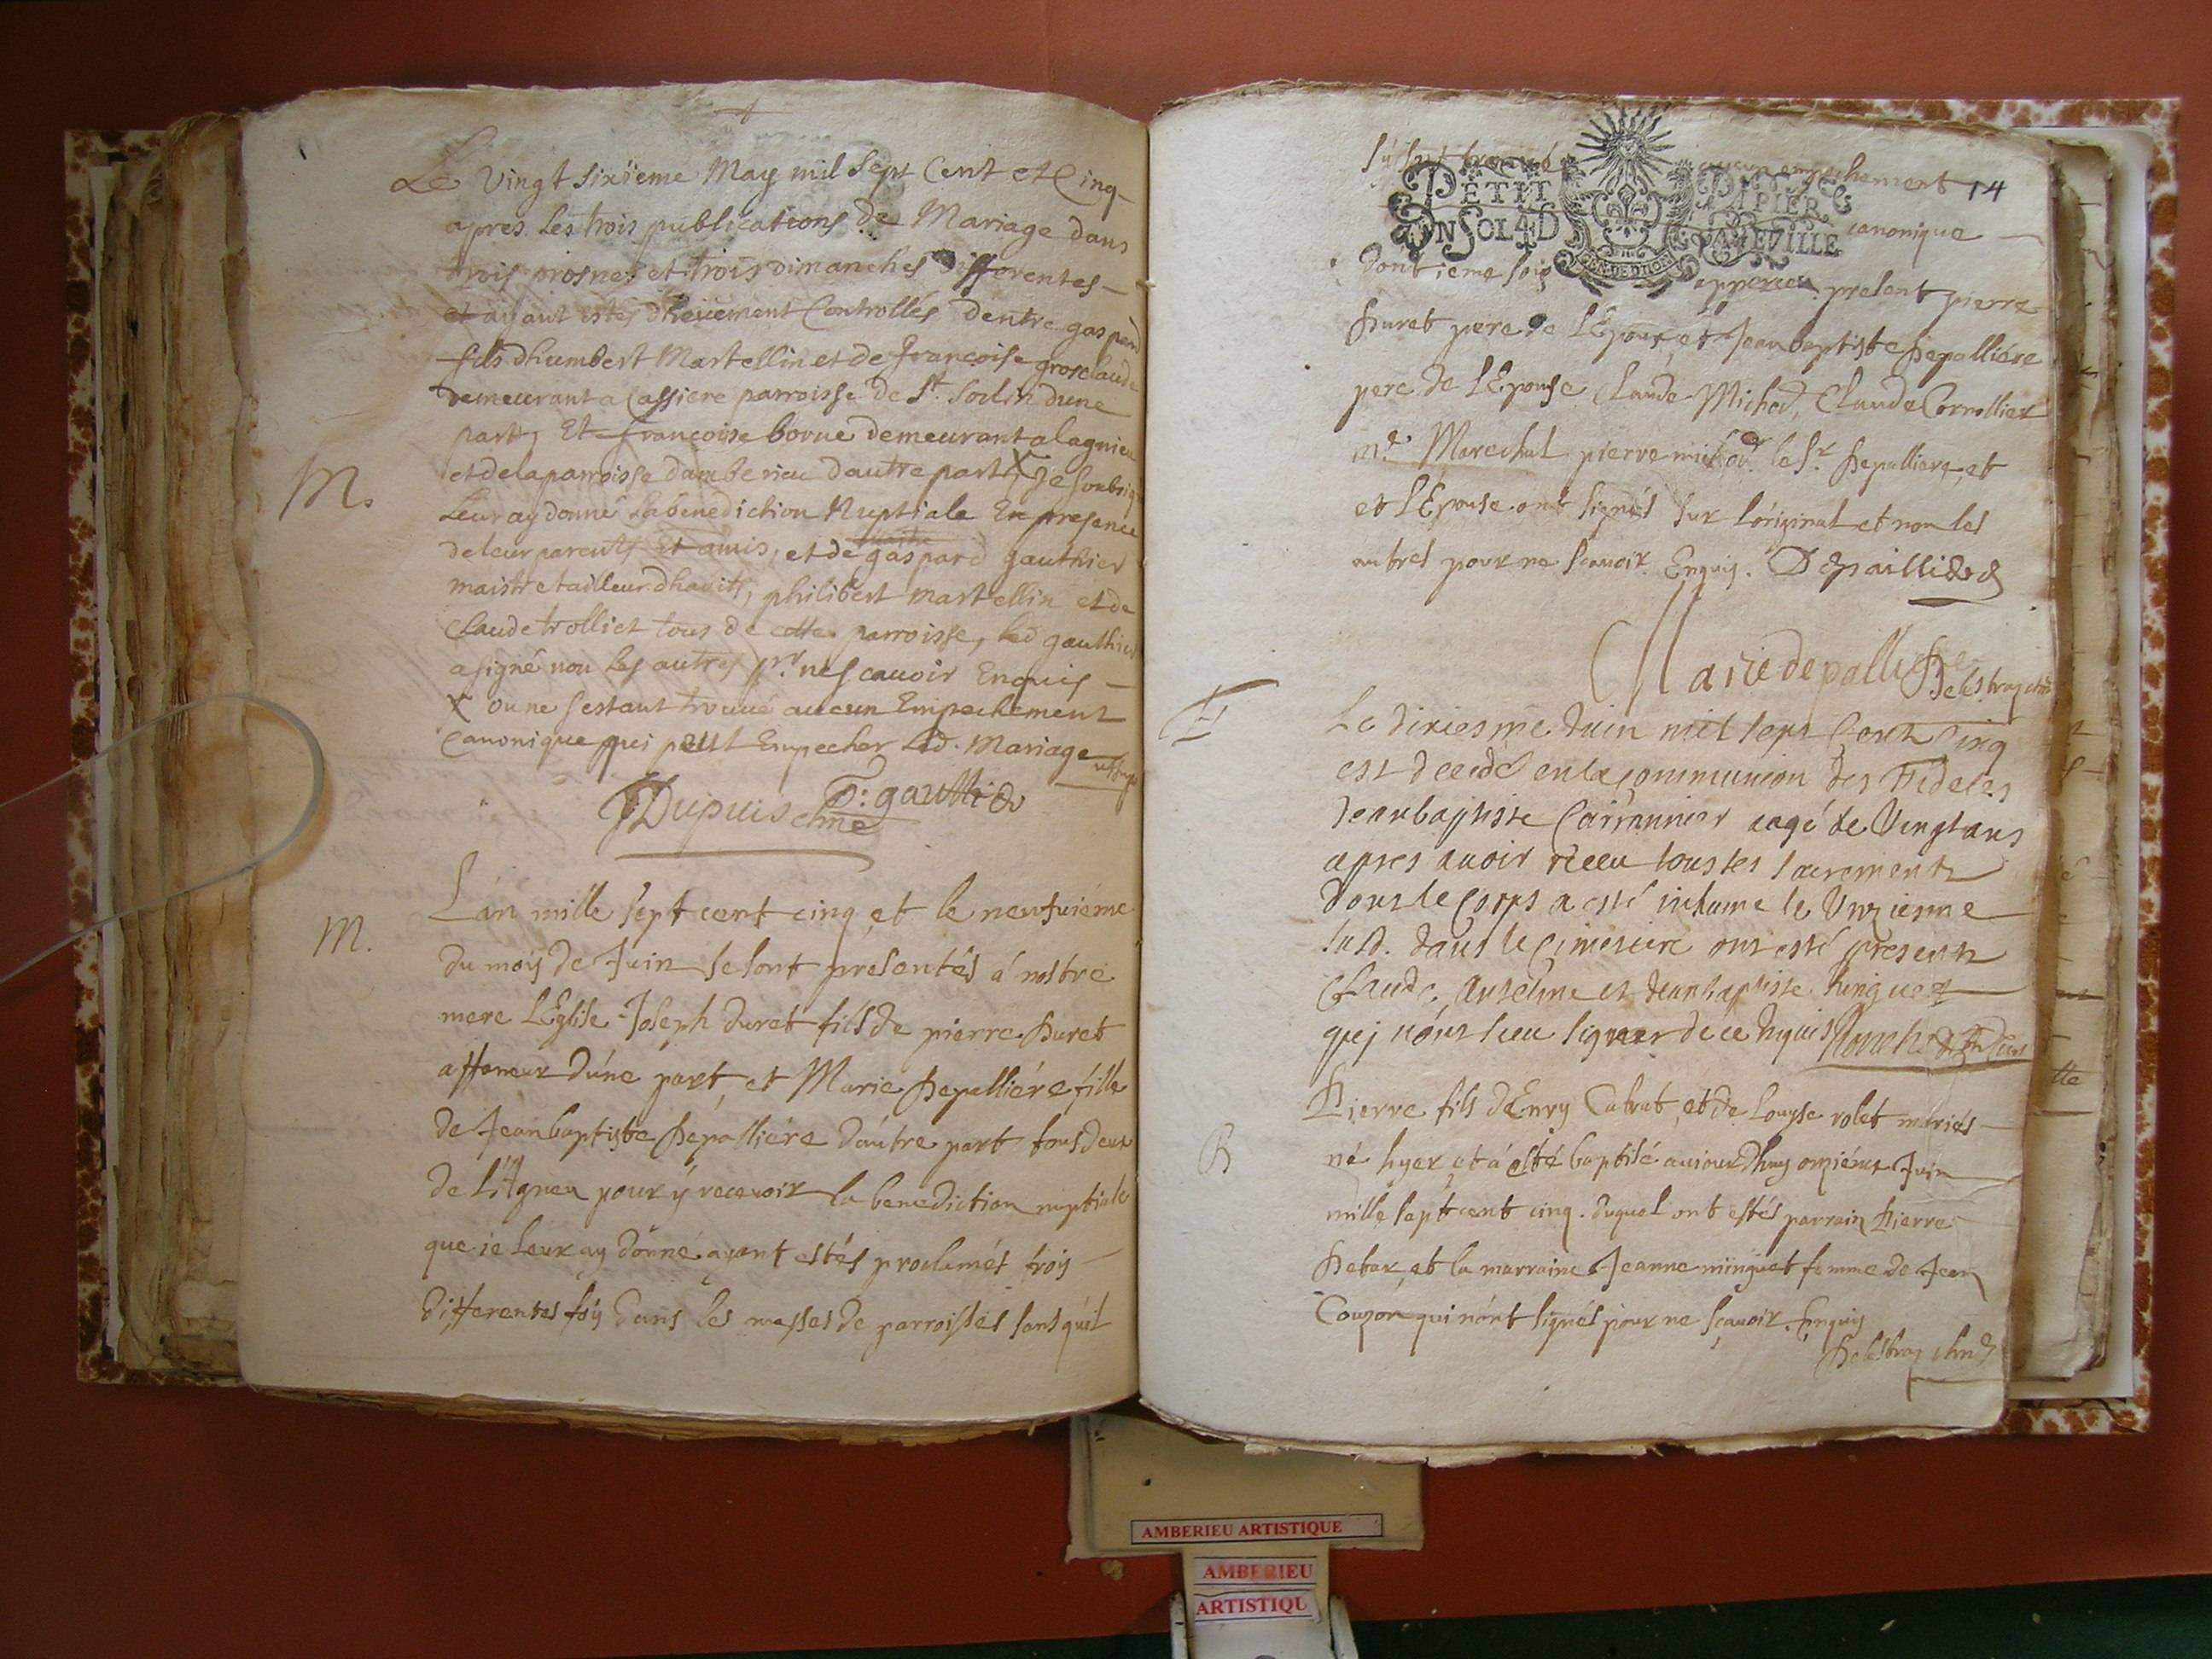 Le Vingt sixieme May mil sept Cent et Cinq
apres Les trois publications de Mariage dans
trois prosnes et trois dimanches differentes
et aijant estes dheuement Controllés dentre gaspard
fils dhumbert Martellin et de francoise grosclaude
demeurant a Cassiere parroisse de St. Sorlin dune
part, Et francoise borne demeurant alagnieu
et delaparroisse damberieu dautre part X Je soubsigné
M. Leur ay donné Labenediction Nuptiale En presence
deleur parents Et amis, et de gaspard gauthier
maistre tailleur dhabits, philibert martellin et de
Claude trolliet tous de cette parroisse, led gauthier
a signé non Les autres pr. nescauoir Enquis
X ou ne sestant trouué aucun Empechement
Canonique qui peut Empecher Led. Mariage
JDupuis chne G: gauthier
L'an mille sept cent cinq et le neufuiéme
M. du mois de Juin se sont presentés á nostre
mere L'Eglise Joseph duret fils de pierre Duret
affaneur d'úne part, et Marie Depalliére fille
de Jeanbaptiste Depalliére d'aútre part tous deux
de L'Agneu pour ÿ receuoir la benediction nuptiale
que ie leur aÿ dónné aÿant estés proclamés trois
differentes fois dans les messes de parroisses sans qu'il
sÿ soit trouué aucun empechement 14
PETIT PAPIER
UN SOL 4 D LA FEUILLE
GEN DE DIION
canonique
dont presant pierre
Duret pere de L'Epoux et Jeanbaptiste Depalliére
pere de L'Epouse Claude Michod, Claude Cornollier
md. Marechal pierre michod. le Sr. Depalliere, et
et L'Epouse ont signés sur L'original et non les
autres pour ne scauoir Enquis. Depailliere
Marie de pallier
Delestraz chne
Le dixiesme Juin mil sept Cent Cinq
est decedé en la Communion des Fideles
Jeanbaptiste Carronnier aagé de Vingt ans
apres auoir receu tous les sacrements
dont le Corps a esté inhumé le Unziesme
dud. dans le Cimetiere ont esté presents
Claude Anselme et Jeanbaptiste
quj n'ont sceu signer de ce enquis
Pierre fils d'Enry Cabrut, et de Louyse rolet mariés
B né hyer et á esté baptisé aujourdhuy onziéme Juin
mille sept cent cinq. duquel ont estés parrain Pierre
et la marraine Jeanne minguet femme de Jean
Couzon qui n'ont signés pour ne scauoir. Enquis
Delestraz chne
AMBERIEU ARTISTIQUE
AMBERIEU
ARTISTIQU